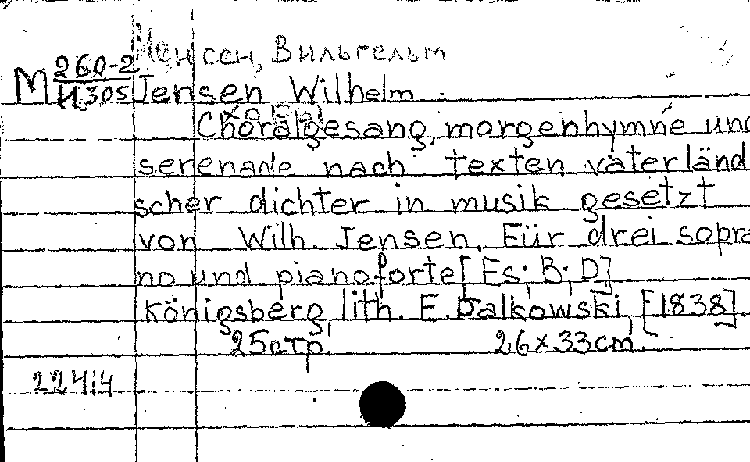 Йенсен, Вильгельм
М 260-2
Й.305 Jensen Wilhelm.
Choralgesang, morgenhymne und
serenade nach texten väterländ
scher dichter in musik gesetzt
von Wilh. Jensen. Für drei sopra
no und pianoforte [Es; B; D]
Königsberg, lith. E. Dalkowski, [1838]
25 стр. 26x33cm.
22414